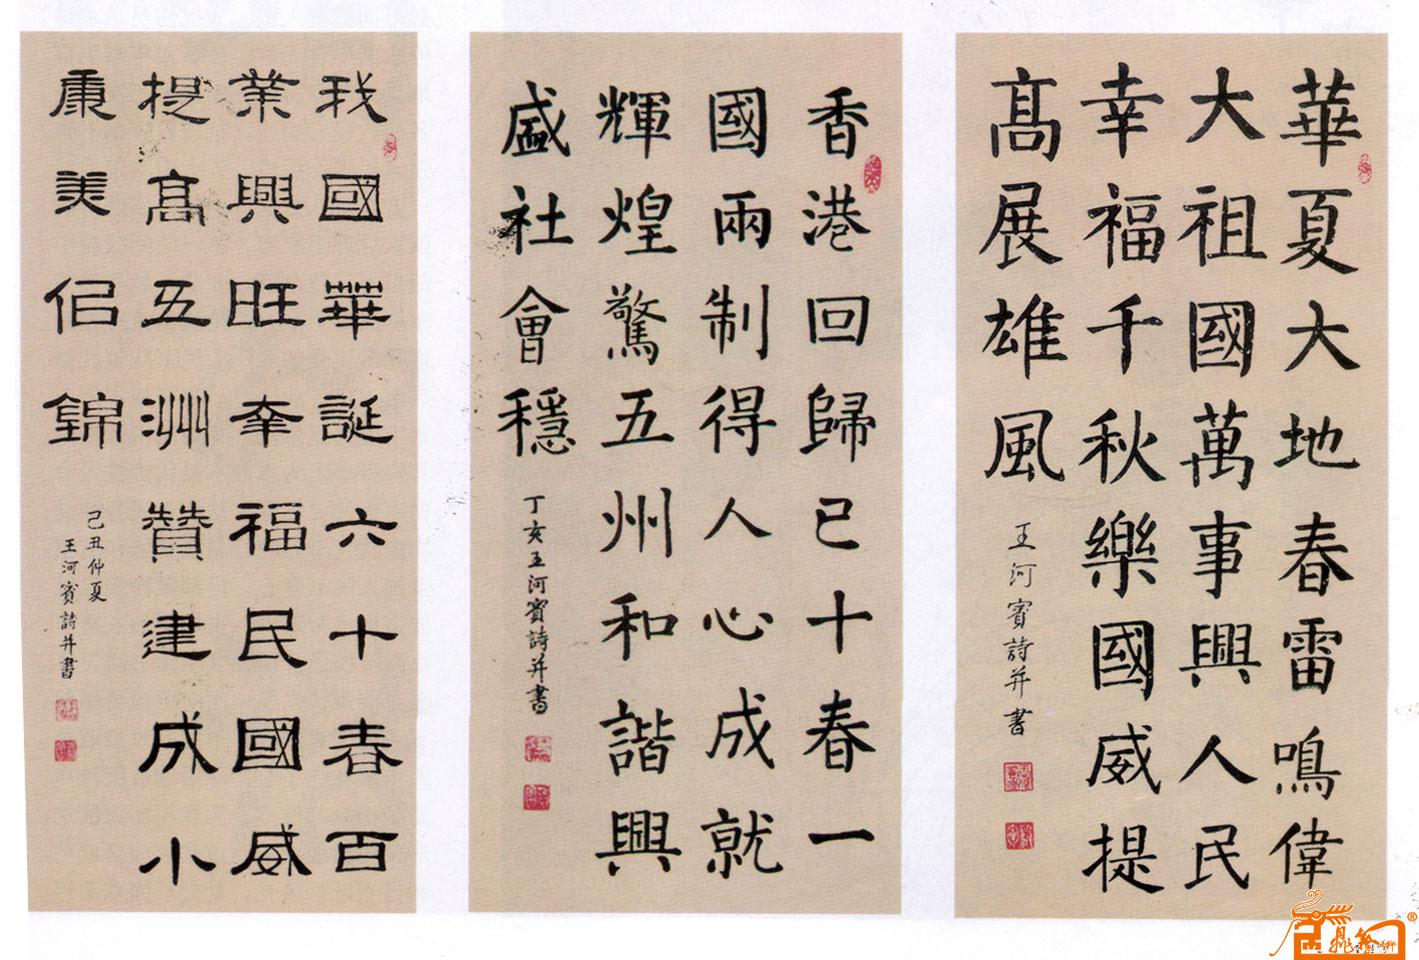 華夏大地春雷鳴偉
大祖國萬事興人民
幸福千秋樂國威提
髙展雄風
王河賓詩并書
香港回歸已十春一
國兩制得人心成就
輝煌驚五州和諧興
盛社會穩
丁亥王河賓詩并書
我國華誕六十春百
業興旺幸福民國威
提髙五洲贊建成小
康美侣錦
己丑仲夏
王河賓詩并書